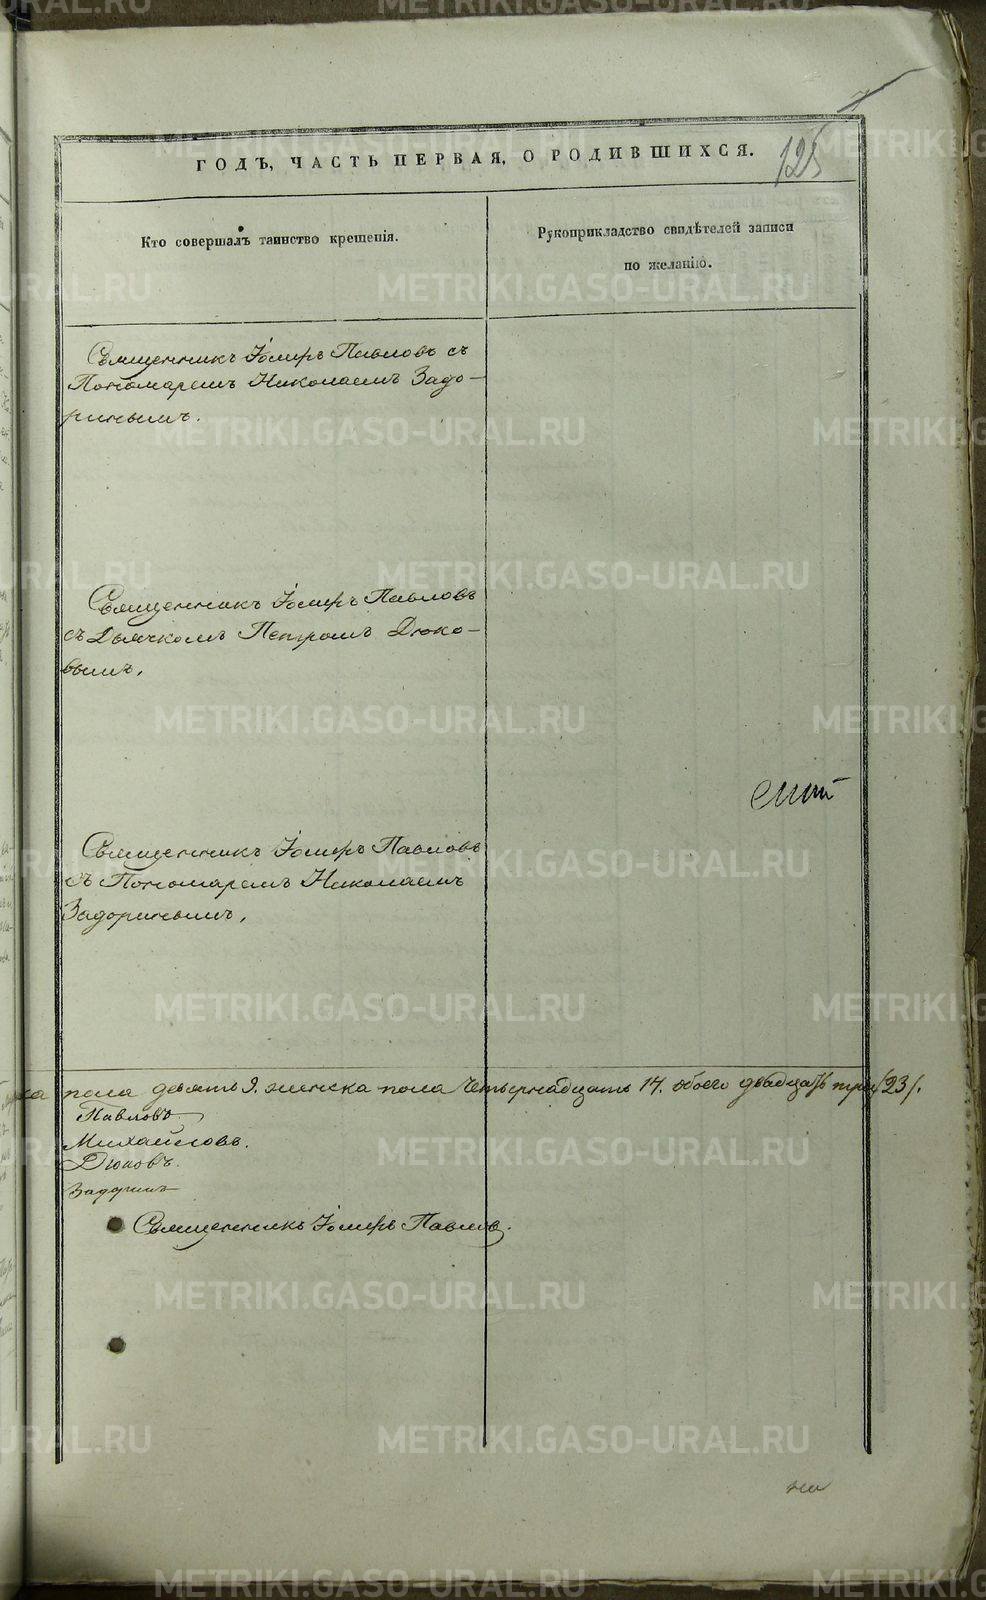 125
ГОДЪ, ЧАСТЬ ПЕРВАЯ, О РОДИВШИХСЯ.
Кто совершалъ таинство крещенія.
Рукоприкладство свидѣтелей записи
по желанію.
Священникъ Іоміръ Павловъ съ
Пономаремъ Николаемъ Задо-
ринымъ.
Священникъ Павловъ
съ Дьячкомъ Петромъ Дюко-
вымъ,
Священникъ Павловъ
съ Пономаремъ Николаемъ
Задоринымъ,
пола девять 9. женска пола четырнадцать 14. обоего двадцать три /23/.
Павловъ
Михайловъ.
Дюковъ.
Задоринъ
Священникъ Павловъ.
METRIKI.GASO-URAL.RU